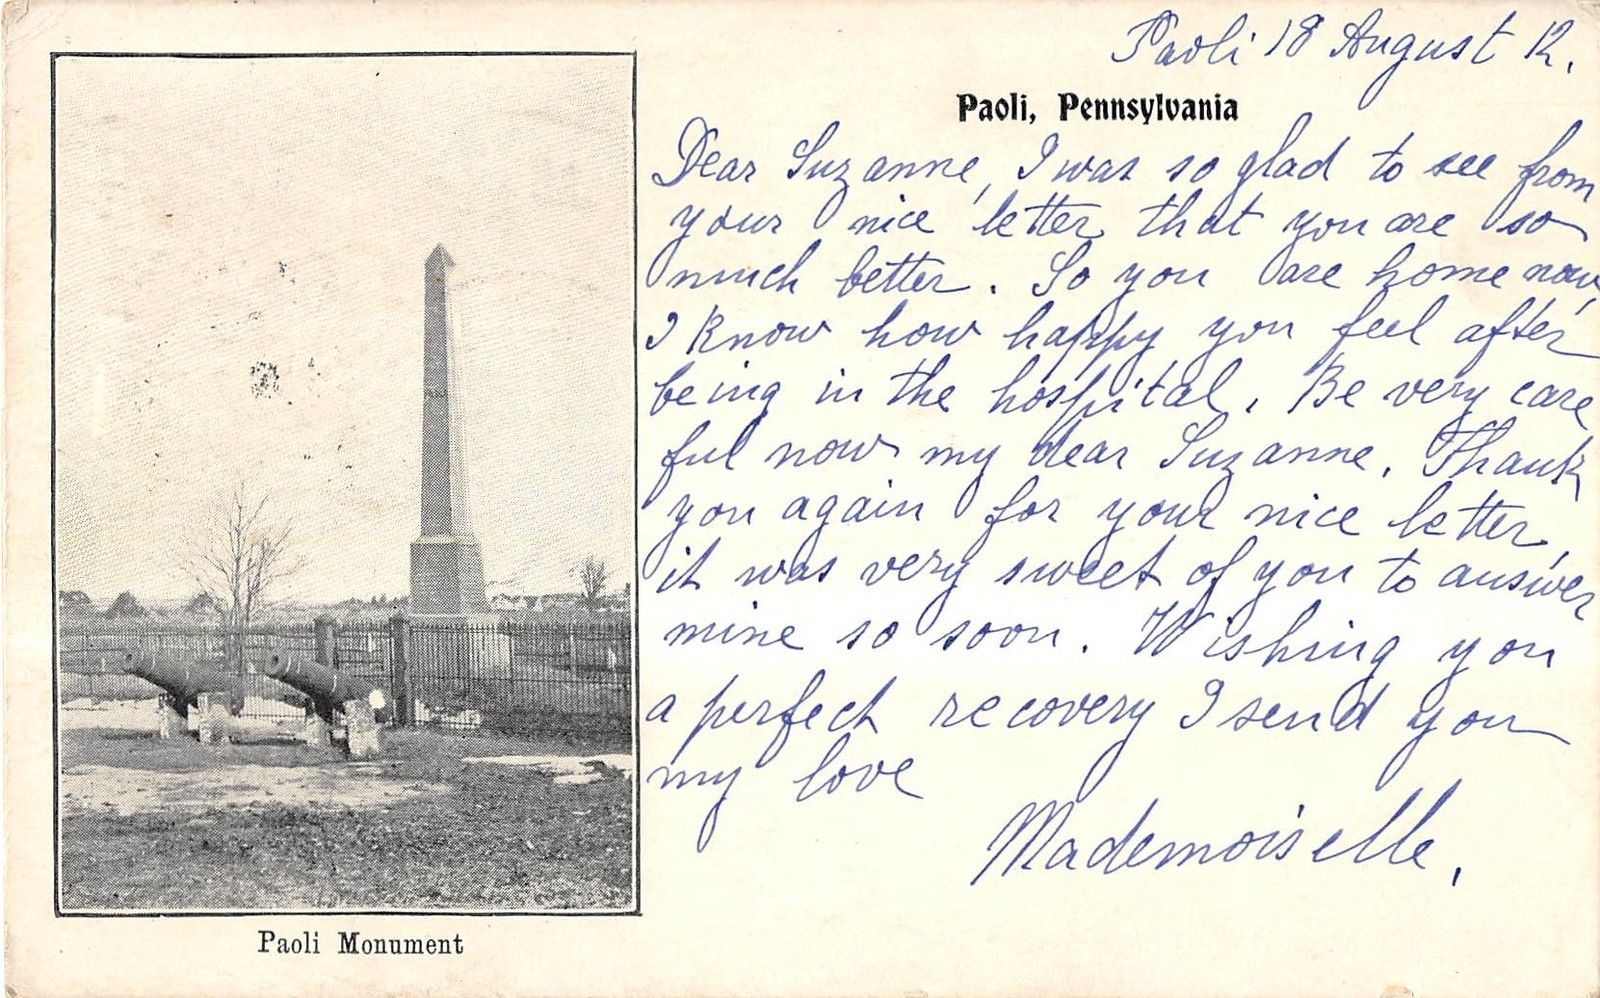 Paoli 18 August 12.
Paoli, Pennsylvania
Dear Suzanne, I was so glad to see from
your nice letter that you are so
much better. So you are home now,
I know how happy you feel after
being in the hospital. Be very care
ful now my dear Suzanne. Thank
you again for your nice letter,
it was very sweet of you to answer
mine so soon. Wishing you
a perfect recovery I send you
my love
Mademoiselle.
Paoli Monument